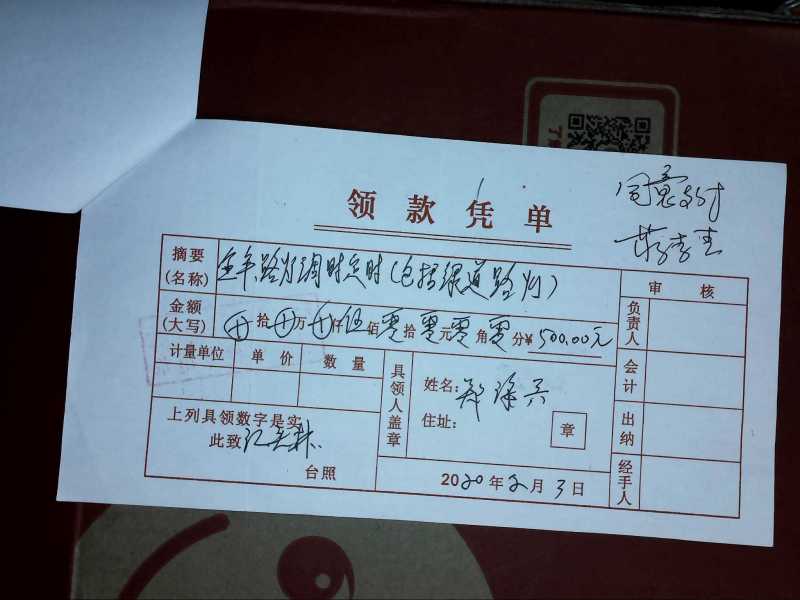 领款凭单
同意支付
摘要(名称) 全年路灯调时定时(包括绿道路灯)
审核
金额(大写) ⊕拾⊕万⊕仟伍佰零拾零元零角零分¥500.00元
负责人
计量单位 单价 数量
具领人盖章
姓名:
会计
上列具领数字是实
住址:
章
出纳
此致
台照
2020年2月3日
经手人